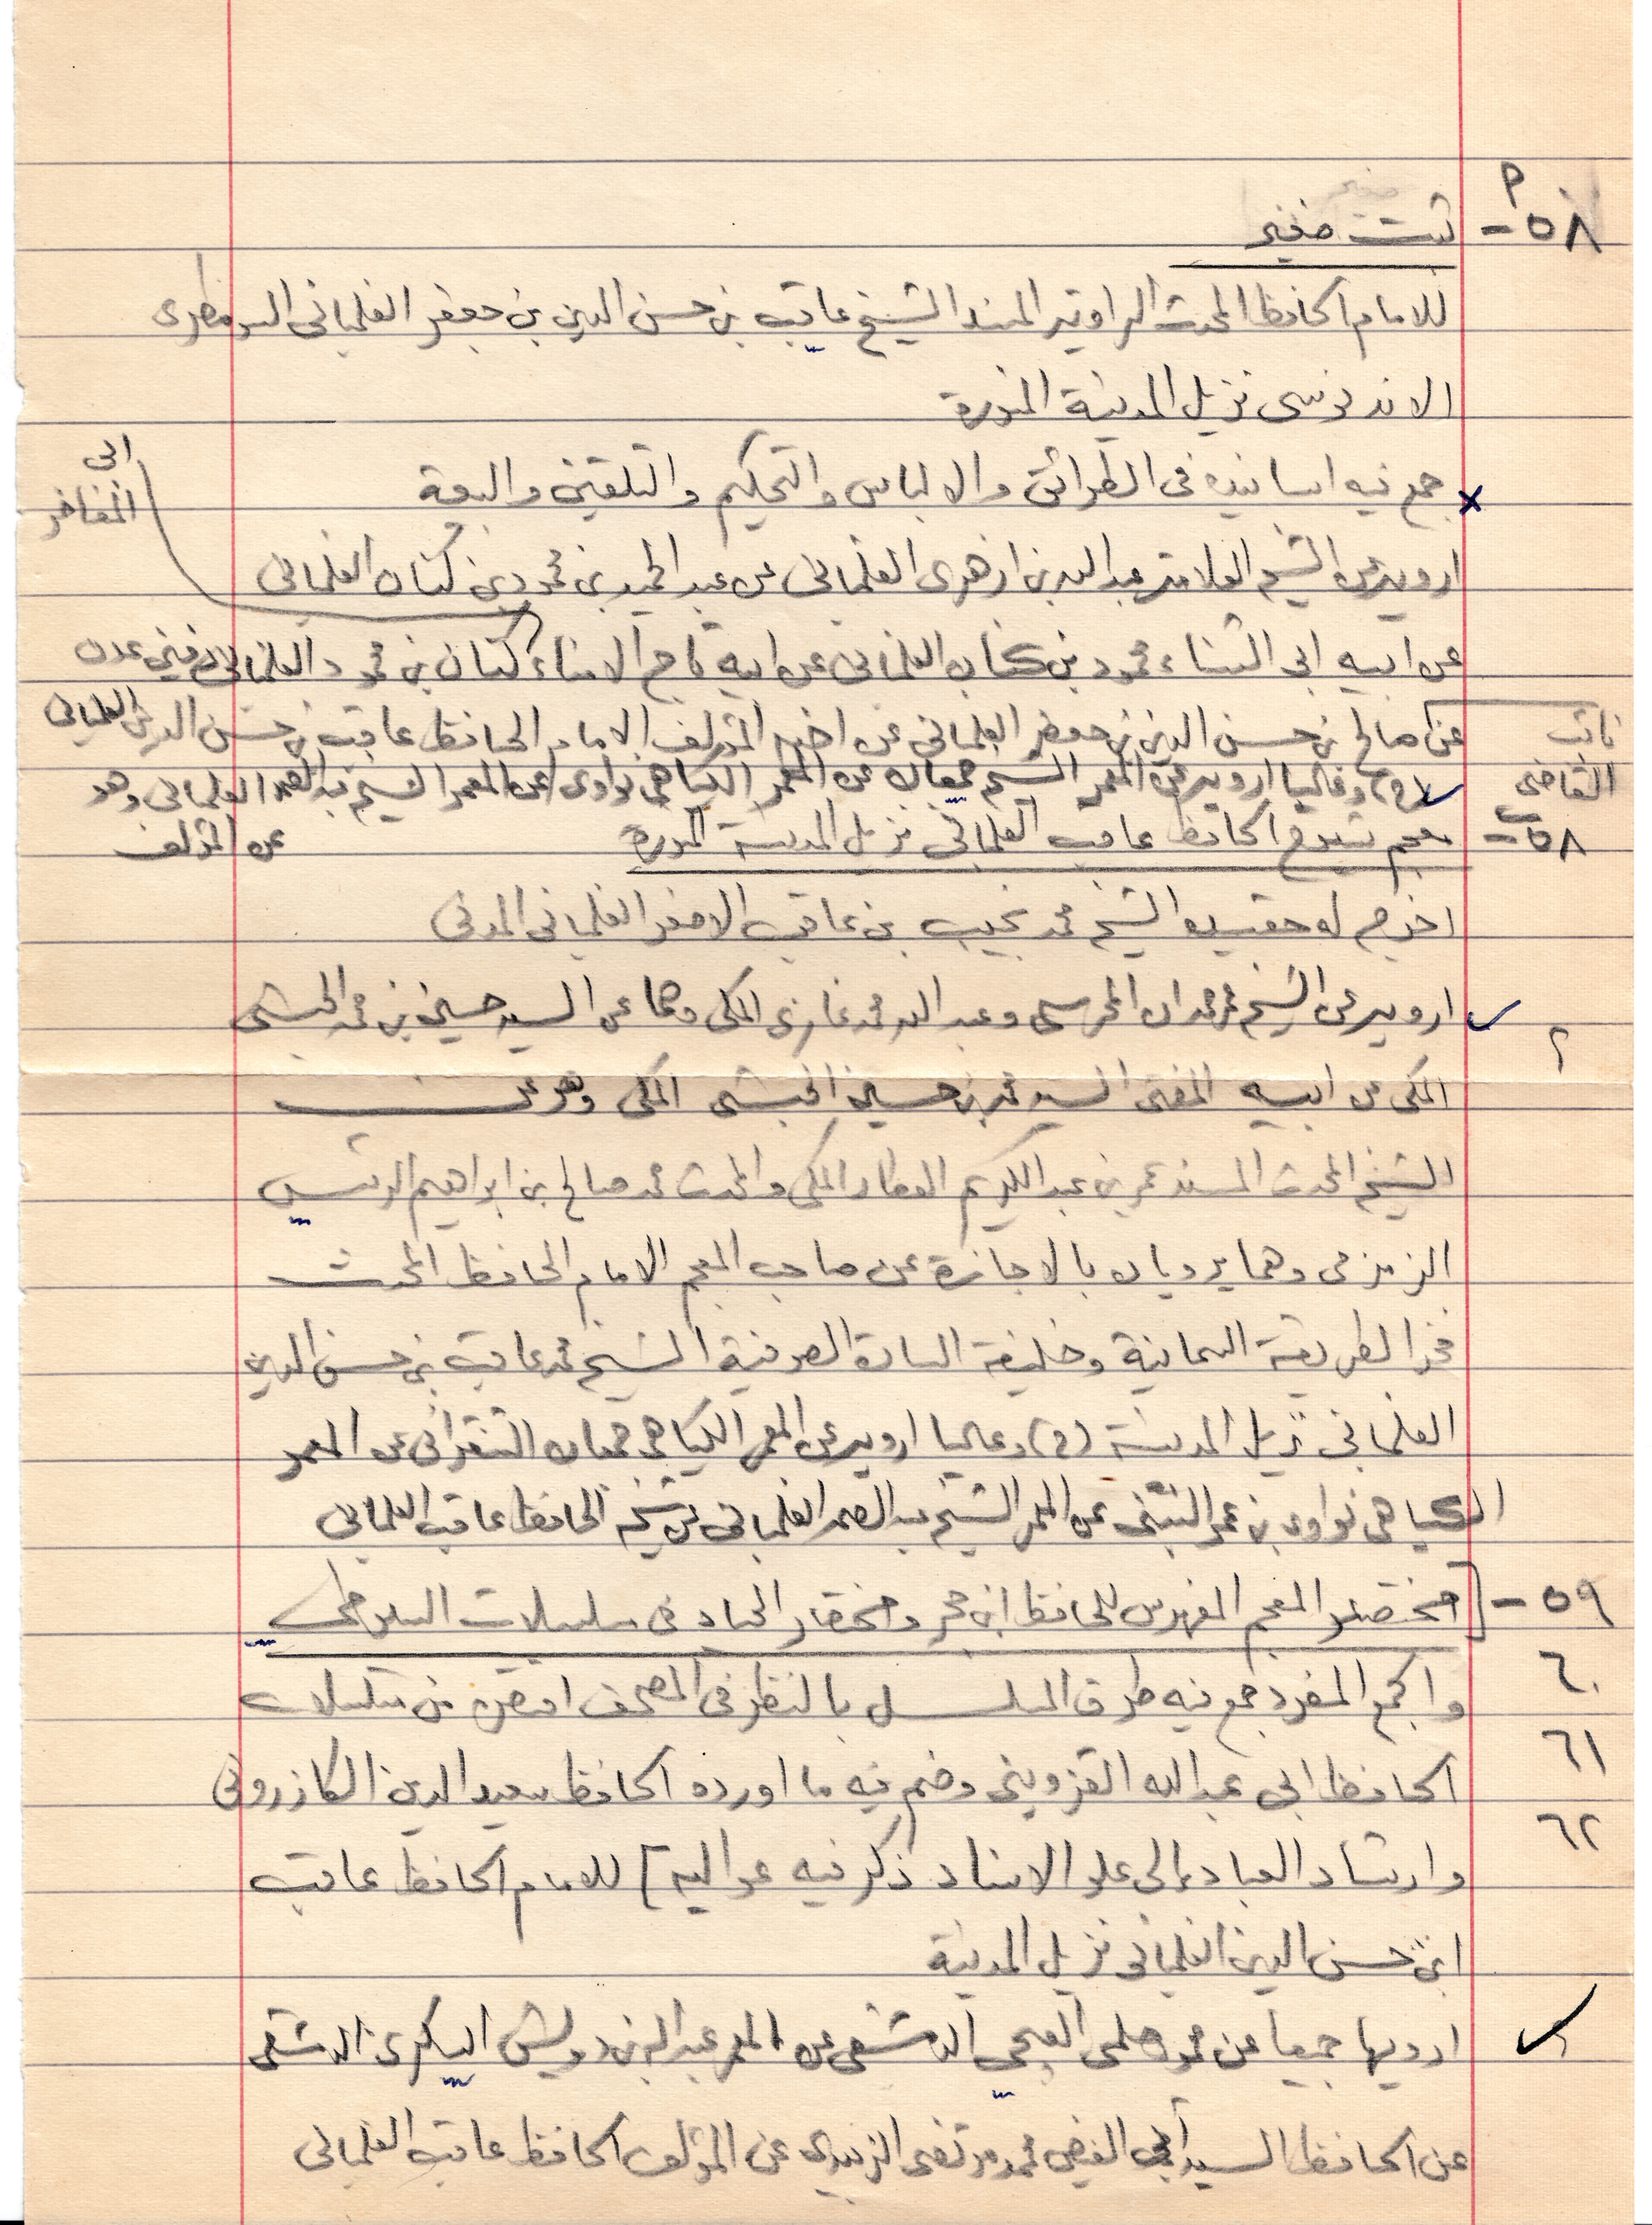 ٥٨م- ثبت صغير
للامام الحافظ المحدث الراوية المسند الشيخ عاقب بن حسن الدين بن جعفر الفلمباني السومطري
الاندونسي نزيل المدينة المنورة
جمع فيه اسانيده في الطرائق والالباس والتحكيم والتلقين والبيعة
ابي المفاخر
ارويه عن الشيخ العلامة عبد الله بن ازهري الفلمباني عن عبد الحميد بن محمود بن كنان الفلمباني
عن ابيه ابي الثناء محمود بن كنان الفلمباني عن ابيه تاج الامناء كنان بن محمود الفلمباني
نائب القاضي
عن صالح بن حسن الدين بن جعفر الفلمباني عن اخيه المؤلف الامام الحافظ عاقب بن حسن الدين الفلمباني
(ح) وعاليا ارويه عن المعمر الشيخ جمعان عن المعمر الكياهي نواوي عن المعمر الشيخ عبد الصمد الفلمباني وهو
عن المؤلف
٥٨ب- معجم شيوخ الحافظ عاقب الفلمباني نزيل المدينة المنورة
اخرجه له حفيده الشيخ محمد نجيب بن عاقب الاصغر الفلمباني المدني
ارويه عن الشيخ عمر حمدان المحرسي وعبد الله محمد غازي المكي وهما عن السيد حسين بن محمد الحبشي
٢
المكي عن ابيه المفتي السيد محمد بن حسين الحبشي المكي وهو عن
الشيخ المحدث المسند عمر بن عبد الكريم العطار المكي والمحدث محمد صالح بن ابراهيم الريس
الزمزمي وهما يرويان بالاجازة عن صاحب المعجم الامام الحافظ المحدث
فخر الطريقة السمانية وخليفة السادة الصوفية الشيخ محمد عاقب بن حسن الدين
الفلمباني نزيل المدينة (ح) وعاليا ارويه عن المعمر الكياهي جمعان التنقراني عن المعمر
الكياهي نواوي بن عمر البنتني عن المعمر الشيخ عبد الصمد الفلمباني عن شيخه الحافظ عاقب الفلمباني
٥٩- [مختصر المعجم المفهرس للحافظ ابن حجر ومختصار الجياد في مسلسلات السيوطي
٦٠
والجمع المفرد جمع فيه طرق المسلسل بالنظر في المصحف من مسلسلات
٦١
الحافظ ابي عبد الله القزويني وضم فيه ما اورده الحافظ سعيد الدين الكازروني
٦٢
وارشاد العباد الى علو الاسناد ذكر فيه عواليه] للامام الحافظ عاقب
ابن حسن الدين الفلمباني نزيل المدينة
ارويها جميعا عن محمود حلمي الدمشقي عن المعمر عبد الله بن درويش السكري الدمشقي
عن الحافظ السيد أبي الفيض محمد مرتضى الزبيدي عن المؤلف الحافظ عاقب الفلمباني